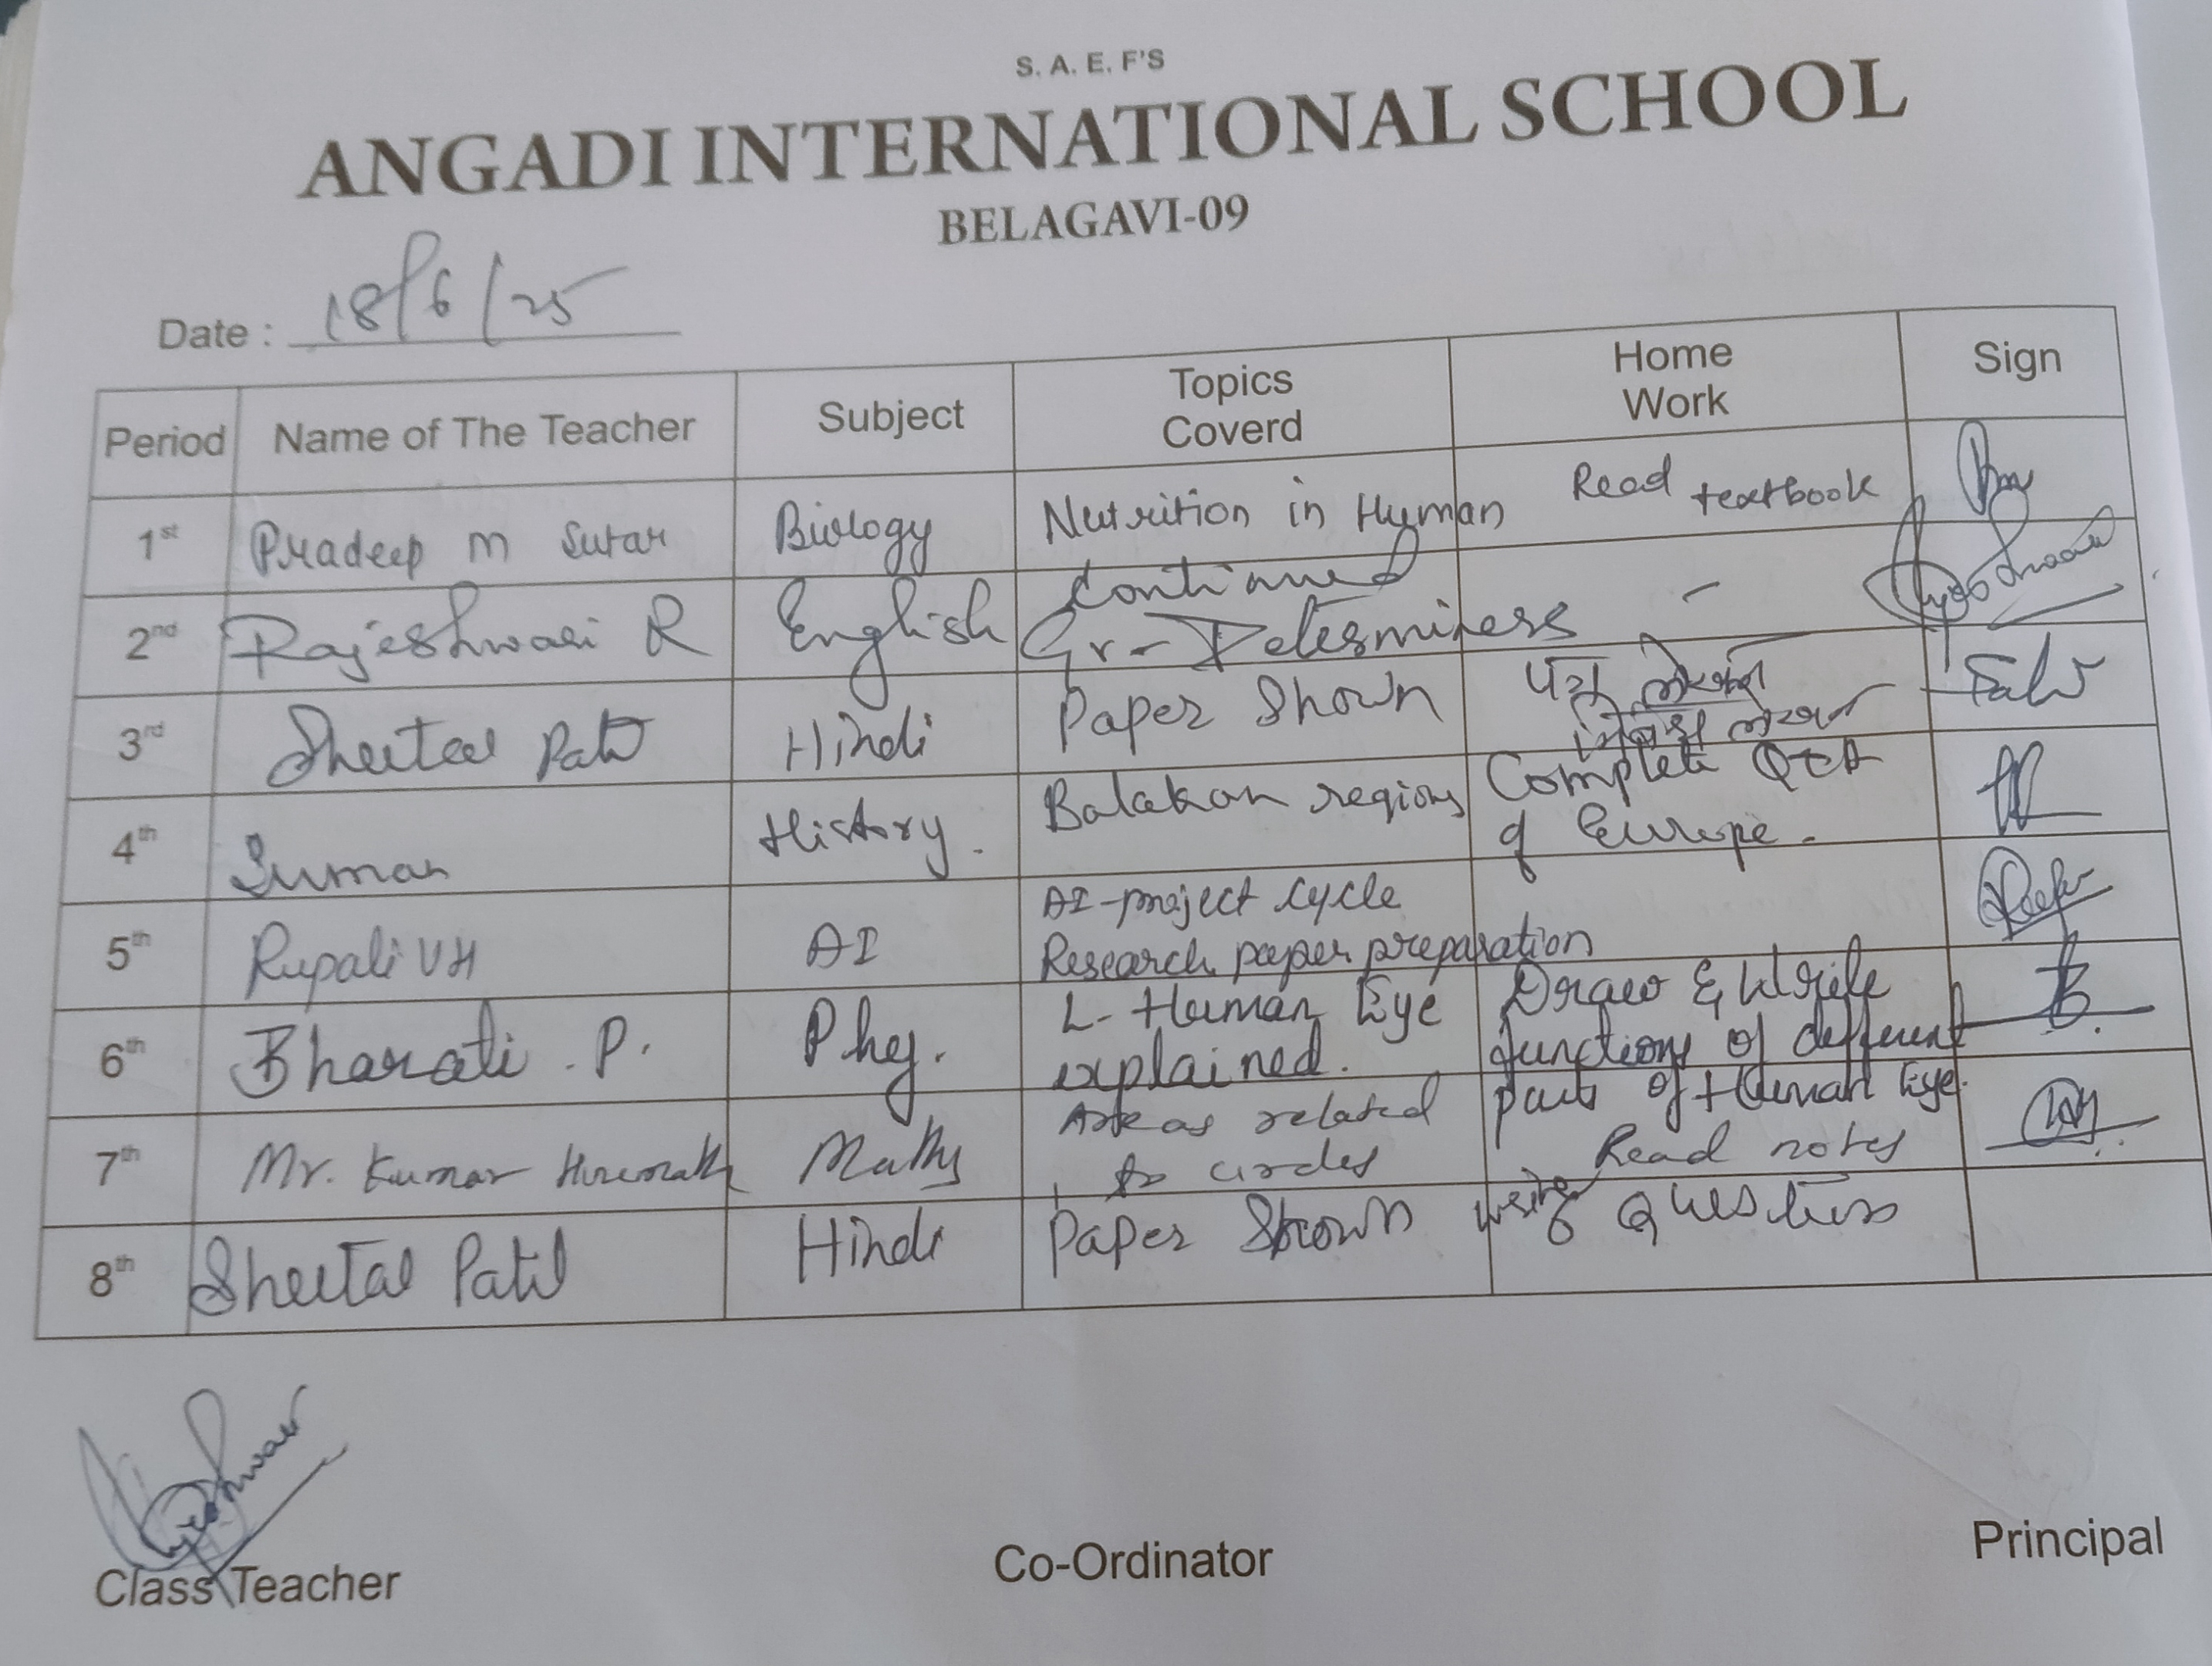 S. A. E. F'S
ANGADI INTERNATIONAL SCHOOL
BELAGAVI-09
Date : 18/6/25
Period Name of The Teacher Subject Topics Coverd Home Work Sign
1st Pradeep M Sutar Biology Nutrition in Human Read textbook
continued
2nd Rajeshwari R English Gr- Determiners -
3rd Sheetal Patil Hindi Paper Shown पत्र लेखन
निबंध लेखन
4th Suman History. Balakan regions Complete Q&A
of Europe.
5th Rupali VH AI AI-project cycle
Research paper preparation
6th Bharati . P. Phy. L- Human Eye Draw & Write
explained. functions of different
parts of Human Eye.
7th Mr. Kumar Hiremath Maths Areas related
to circles Read notes
8th Sheetal Patil Hindi Paper Shown Questions
Class Teacher
Co-Ordinator
Principal